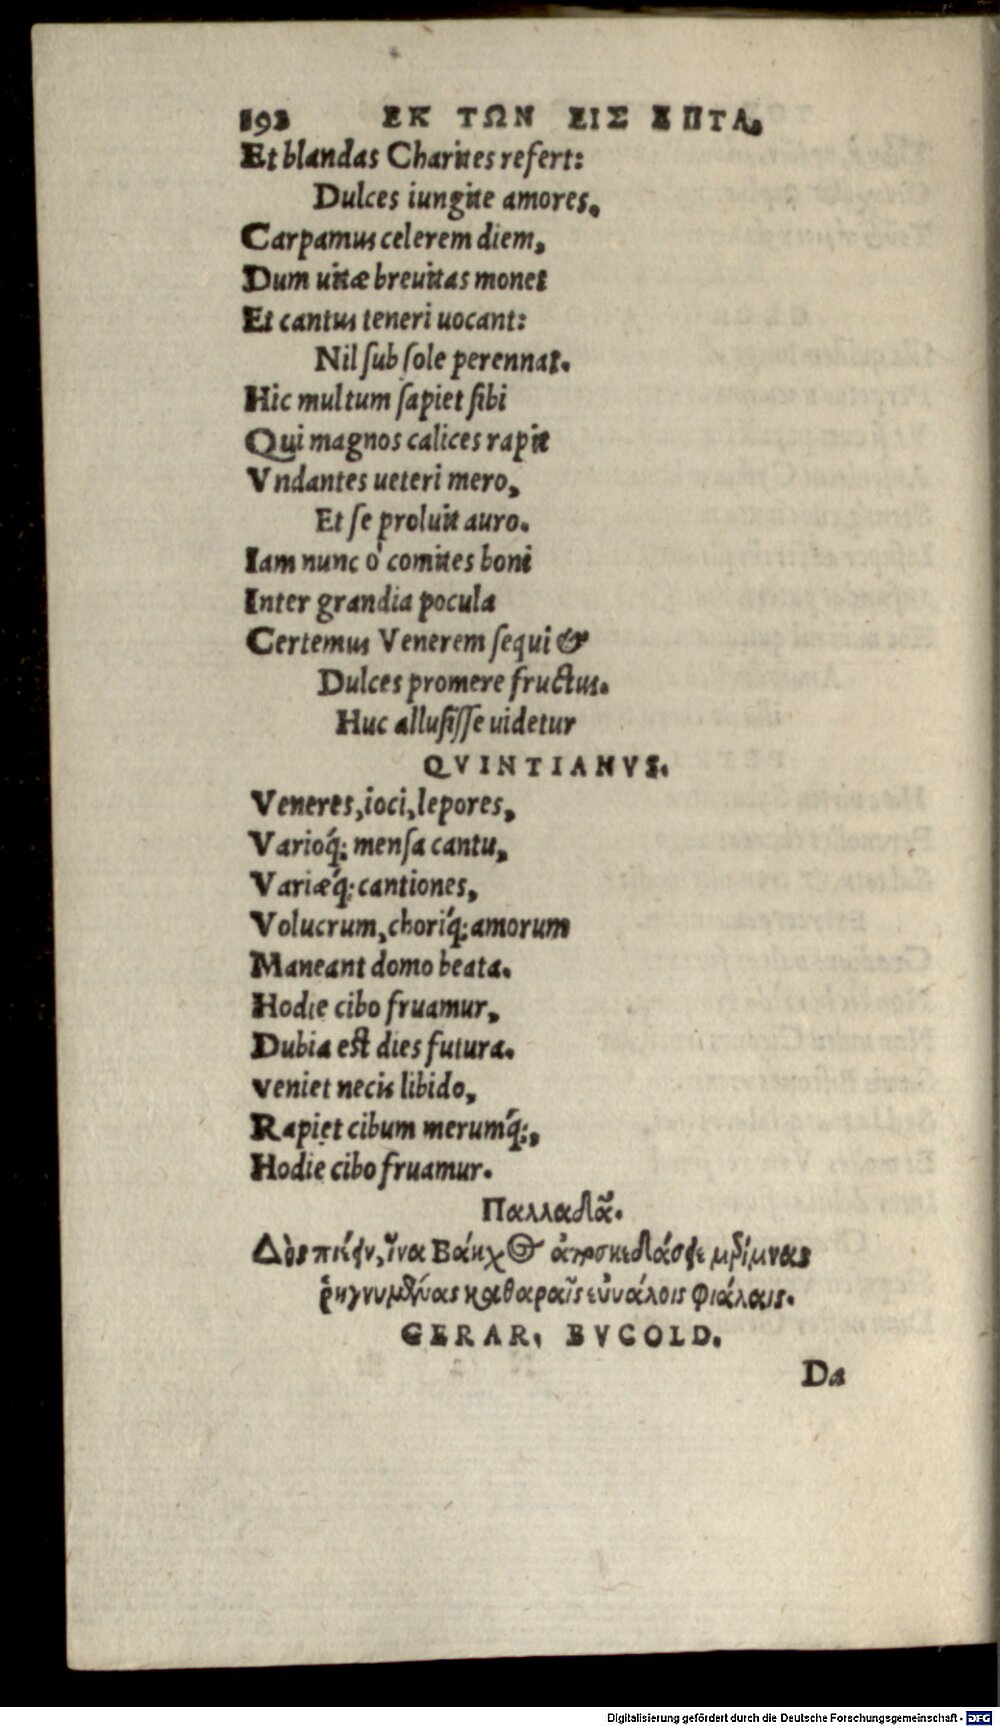 192 ΕΚ ΤΩΝ ΕΙΣ ΕΠΤΑ.
Et blandas Charites refert:
Dulces iungite amores.
Carpamus celerem diem,
Dum uitæ breuitas monet
Et cantus teneri uocant:
Nil ſub ſole perennat.
Hic multum ſapiet ſibi
Qui magnos calices rapit
Vndantes ueteri mero,
Et ſe proluit auro.
Iam nunc ò comites boni
Inter grandia pocula
Certemus Venerem ſequi &
Dulces promere fructus.
Huc alluſiſſe uidetur
QVINTIANVS.
Veneres, ioci, lepores,
Varioq́; menſa cantu,
Variæq́; cantiones,
Volucrum, choriq́; amorum
Maneant domo beata.
Hodie cibo fruamur,
Dubia eſt dies futura.
veniet necis libido,
Rapiet cibum merumq́;,
Hodie cibo fruamur.
Παλλαδᾶ.
Δὸς πιέειν, ἵνα Βάκχος ἀποσκεδάσειε μερίμνας
ῥηγνυμένας καθαραῖς εὐυάλοις φιάλαις.
GERAR. BVCOLD.
Da
Digitalisierung gefördert durch die Deutsche Forschungsgemeinschaft - DFG